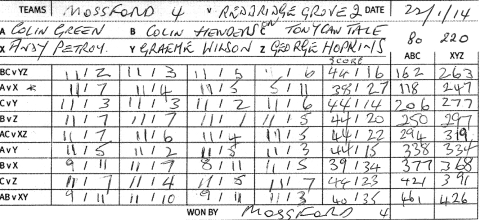 TEAMS MOSSFORD 4 V REDBRIDGE GROVE 2 DATE 22/1/14
A COLIN GREEN B COLIN HENDERSEN TONY CANTALE 80 220
X ANDY PETROY. Y GRAEME WILSON Z GEORGE HOPKINS SCORE ABC XYZ
BCvYZ 11/2 11/3 11/5 11/6 44/16 162 263
AvX 11/7 11/4 11/5 5/11 38/27 118 247
CvY 11/3 11/3 11/2 11/6 44/14 206 277
BvZ 11/7 11/7 11/1 11/5 44/20 250 297
ACvXZ 11/7 11/6 11/4 11/5 44/22 294 319
AvY 11/5 11/2 11/5 11/3 44/15 338 334
BvX 9/11 11/7 8/11 11/5 39/34 377 368
CvZ 11/7 11/4 11/5 11/7 44/23 421 391
ABvXY 9/11 11/10 9/11 11/3 40/35 461 426
WON BY MOSSFORD 4